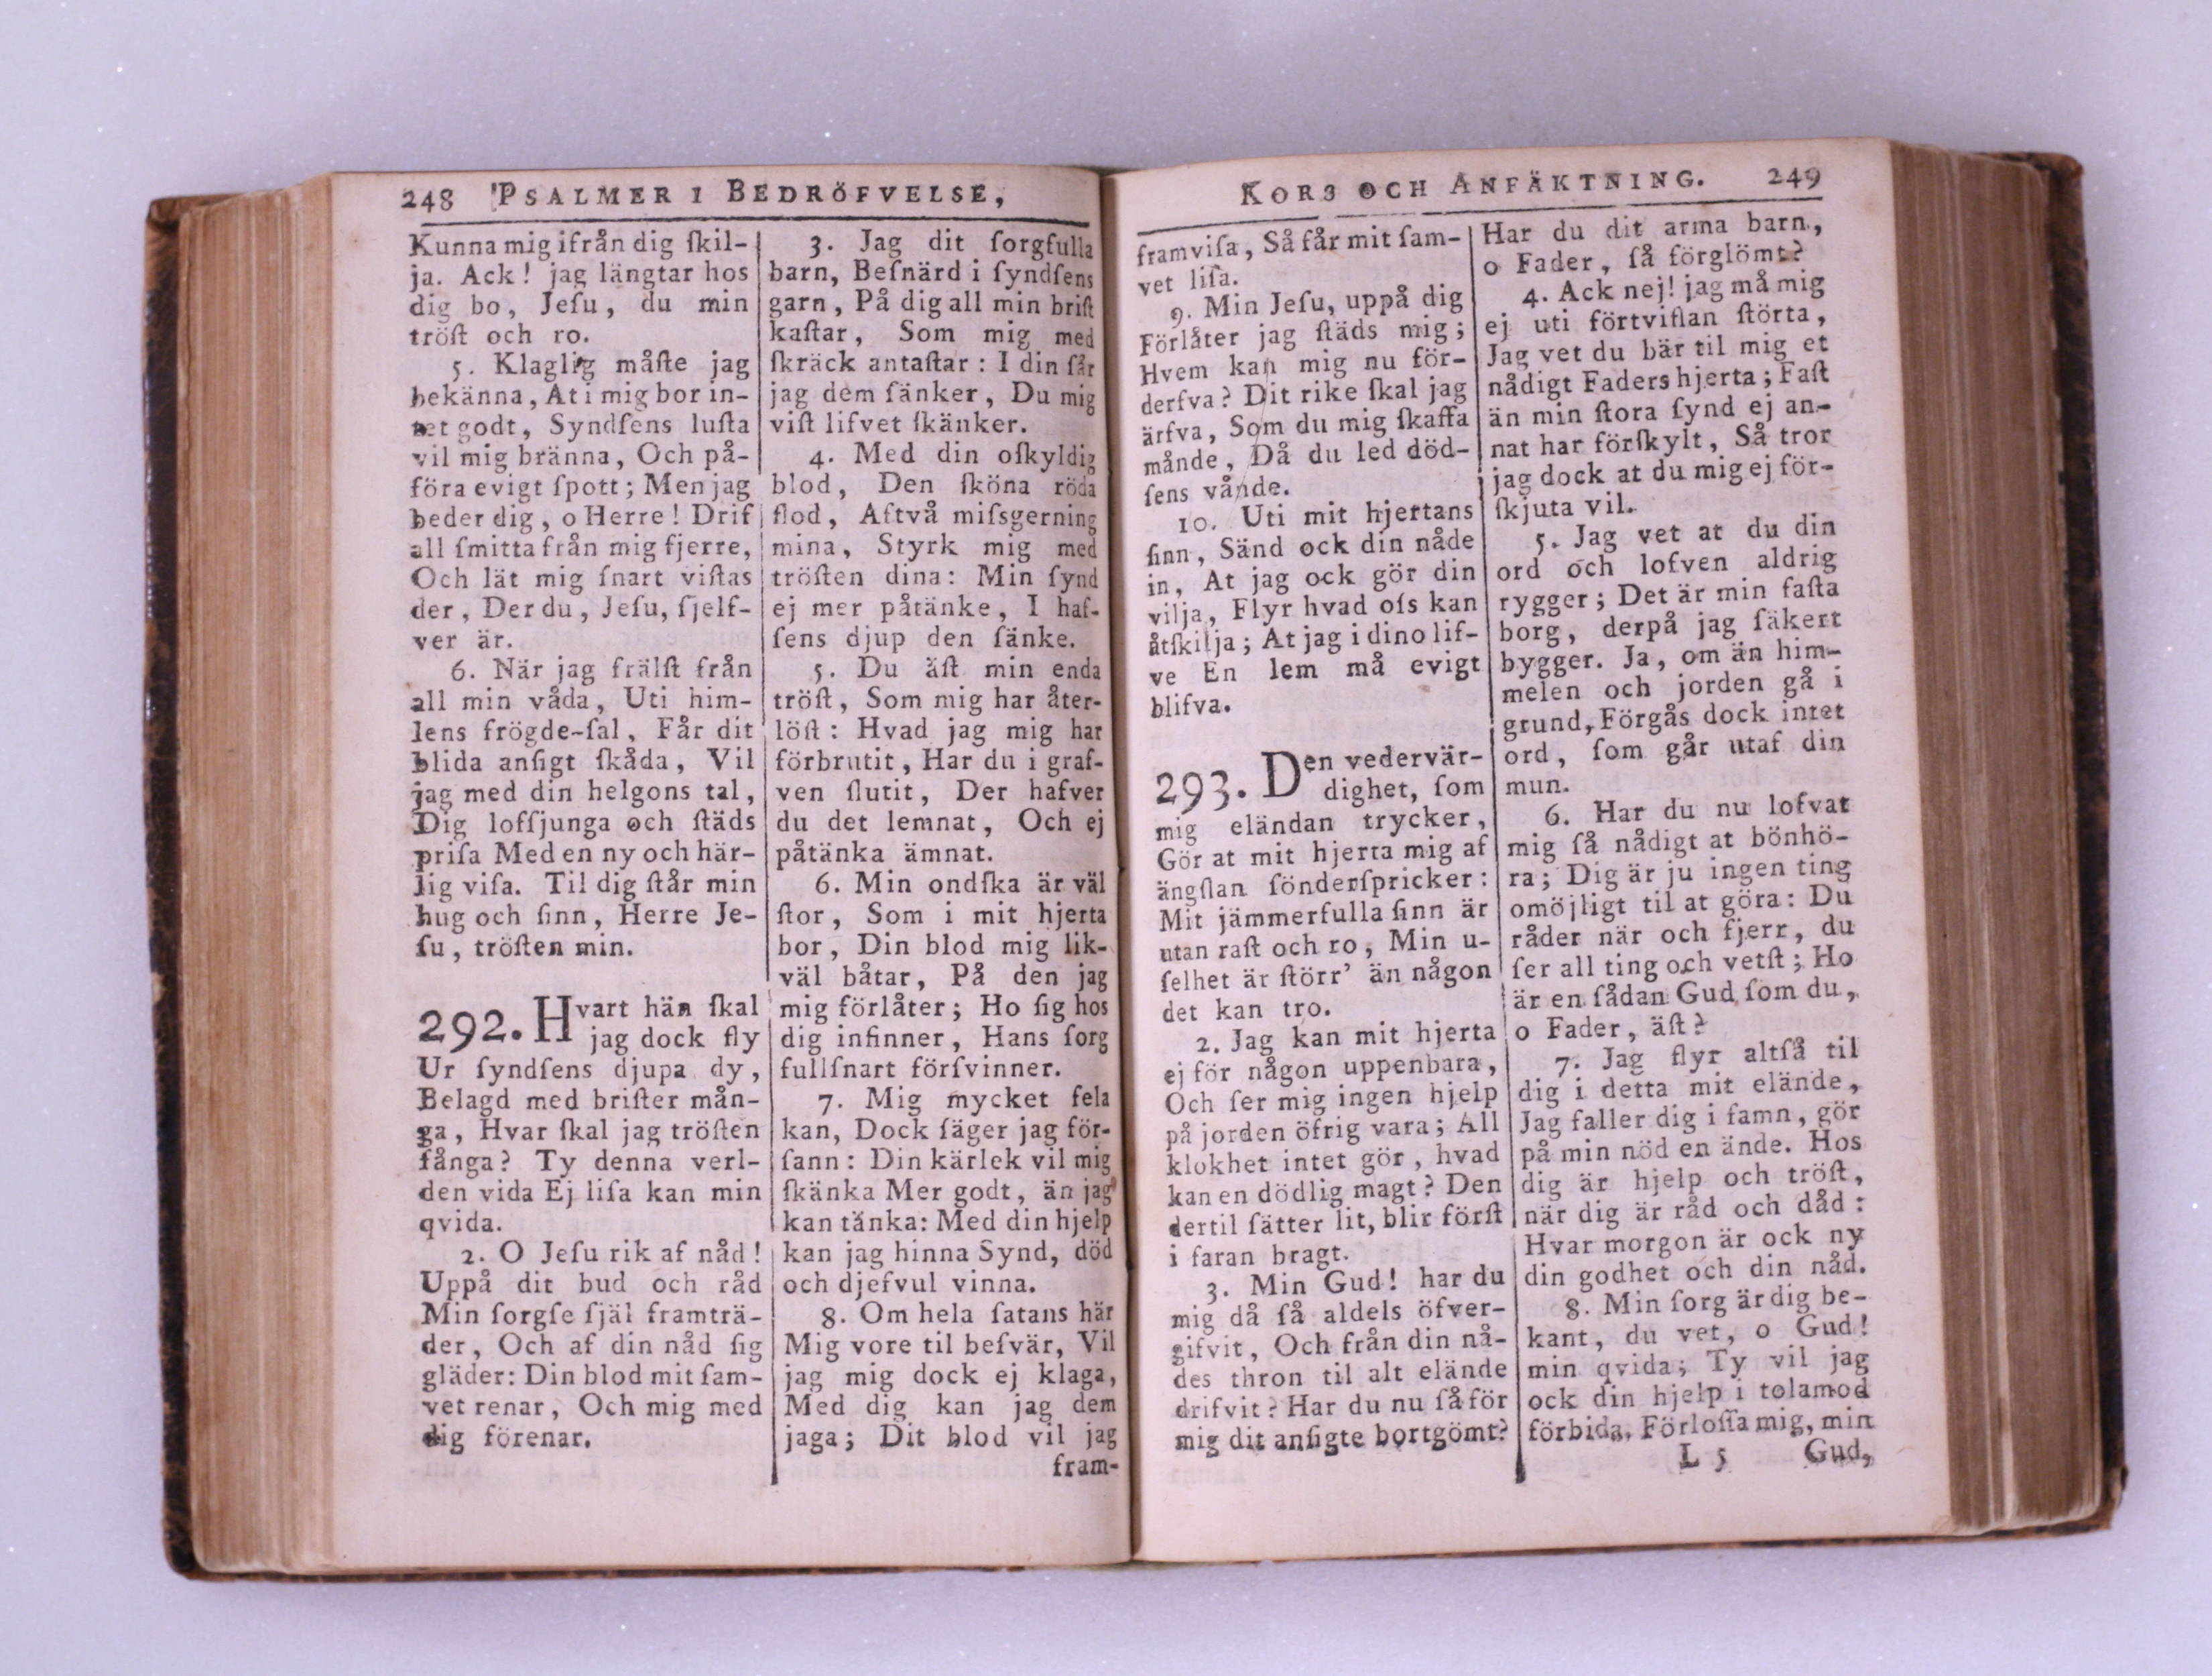 248 PSALMER I BEDRÖFVELSE,
Kunna mig ifrån dig ſkil-
ja. Ack! jag längtar hos
dig bo, Jeſu, du min
tröſt och ro.
5. Klaglig måſte jag
bekänna, At i mig bor in-
tet godt, Syndſens luſta
vil mig bränna, Och på-
föra evigt ſpott; Men jag
beder dig, o Herre! Drif
all ſmitta från mig fjerre,
Och lät mig ſnart viſtas
der, Der du, Jeſu, ſjelf-
ver är.
6. När jag frälſt från
all min våda, Uti him-
lens frögde-ſal, Får dit
blida anſigt ſkåda, Vil
jag med din helgons tal,
Dig lofſjunga och ſtäds
priſa Med en ny och här-
lig viſa. Til dig ſtår min
hug och ſinn, Herre Je-
ſu, tröſten min.
292. Hvart hän ſkal
jag dock fly
Ur ſyndſens djupa dy,
Belagd med briſter mån-
ga, Hvar ſkal jag tröſten
fånga? Ty denna verl-
den vida Ej liſa kan min
qvida.
2. O Jeſu rik af nåd!
Uppå dit bud och råd
Min ſorgſe ſjäl framträ-
der, Och af din nåd ſig
gläder: Din blod mit ſam-
vet renar, Och mig med
dig förenar.
3. Jag dit ſorgfulla
barn, Beſnärd i ſyndſens
garn, På dig all min briſt
kaſtar, Som mig med
ſkräck antaſtar: I din ſår
jag dem ſänker, Du mig
viſt lifvet ſkänker.
4. Med din oſkyldig
blod, Den ſköna röda
flod, Aftvå miſsgerning
mina, Styrk mig med
tröſten dina: Min ſynd
ej mer påtänke, I haf-
ſens djup den ſänke.
5. Du äſt min enda
tröſt, Som mig har åter-
löſt: Hvad jag mig har
förbrutit, Har du i graf-
ven ſlutit, Der hafver
du det lemnat, Och ej
påtänka ämnat.
6. Min ondſka är väl
ſtor, Som i mit hjerta
bor, Din blod mig lik-
väl båtar, På den jag
mig förlåter; Ho ſig hos
dig infinner, Hans ſorg
fullſnart förſvinner.
7. Mig mycket fela
kan, Dock ſäger jag för-
ſann: Din kärlek vil mig
ſkänka Mer godt, än jag
kan tänka: Med din hjelp
kan jag hinna Synd, död
och djefvul vinna.
8. Om hela ſatans här
Mig vore til beſvär, Vil
jag mig dock ej klaga,
Med dig kan jag dem
jaga; Dit blod vil jag
fram-
KORS OCH ANFÄKTNING. 249
framviſa, Så får mit ſam-
vet liſa.
9. Min Jeſu, uppå dig
Förlåter jag ſtäds mig;
Hvem kan mig nu för-
derfva? Dit rike ſkal jag
ärfva, Som du mig ſkaffa
månde, Då du led död-
ſens vånde.
10. Uti mit hjertans
ſinn, Sänd ock din nåde
in, At jag ock gör din
vilja, Flyr hvad oſs kan
åtſkilja; At jag i dino lif-
ve En lem må evigt
blifva.
293. Den vedervär-
dighet, ſom
mig eländan trycker,
Gör at mit hjerta mig af
ängſlan ſönderſpricker:
Mit jämmerfulla ſinn är
utan raſt och ro, Min u-
ſelhet är ſtörr' än någon
det kan tro.
2. Jag kan mit hjerta
ej för någon uppenbara,
Och ſer mig ingen hjelp
på jorden öfrig vara; All
klokhet intet gör, hvad
kan en dödlig magt? Den
dertil ſätter lit, blir förſt
i faran bragt.
3. Min Gud! har du
mig då ſå aldels öfver-
gifvit, Och från din nå-
des thron til alt elände
drifvit? Har du nu ſå för
mig dit anſigte bortgömt?
Har du dit arma barn,
o Fader, ſå förglömt?
4. Ack nej! jag må mig
ej uti förtviflan ſtörta,
Jag vet du bär til mig et
nådigt Faders hjerta; Faſt
än min ſtora ſynd ej an-
nat har förſkylt, Så tror
jag dock at du mig ej för-
ſkjuta vil.
5. Jag vet at du din
ord och lofven aldrig
rygger; Det är min faſta
borg, derpå jag ſäkert
bygger. Ja, om än him-
melen och jorden gå i
grund, Förgås dock intet
ord, ſom går utaf din
mun.
6. Har du nu lofvat
mig ſå nådigt at bönhö-
ra; Dig är ju ingen ting
omöjligt til at göra: Du
råder när och fjerr, du
ſer all ting och vetſt; Ho
är en ſådan Gud ſom du,
o Fader, äſt?
7. Jag flyr altſå til
dig i detta mit elände,
Jag faller dig i famn, gör
på min nöd en ände. Hos
dig är hjelp och tröſt,
när dig är råd och dåd:
Hvar morgon är ock ny
din godhet och din nåd.
8. Min ſorg är dig be-
kant, du vet, o Gud!
min qvida; Ty vil jag
ock din hjelp i tolamod
förbida. Förloſſa mig, min
L 5 Gud,